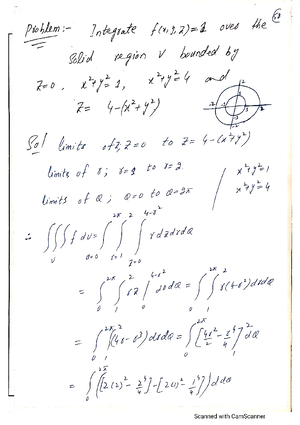 Problem:- Integrate f(x,y,z)=1 over the
solid region V bounded by
z=0, x²+y²=1, x²+y²=4 and
z= 4-(x²+y²)
Sol limits of z; z=0 to z=4-(x²+y²)
limits of r; r=1 to r=2
x²+y²=1
x²+y²=4
limits of θ; θ=0 to θ=2π
∴ ∭_V f dv = ∫_{θ=0}^{2π} ∫_{r=1}^{2} ∫_{z=0}^{4-r²} r dz dr dθ
= ∫_0^{2π} ∫_1^2 rz |_0^{4-r²} dr dθ = ∫_0^{2π} ∫_1^2 r(4-r²) dr dθ
= ∫_0^{2π} ∫_1^2 (4r-r³) dr dθ = ∫_0^{2π} [4r²/2 - r⁴/4]_1^2 dθ
= ∫_0^{2π} ([2(2)² - 2⁴/4] - [2(1)² - 1⁴/4]) dθ
Scanned with CamScanner